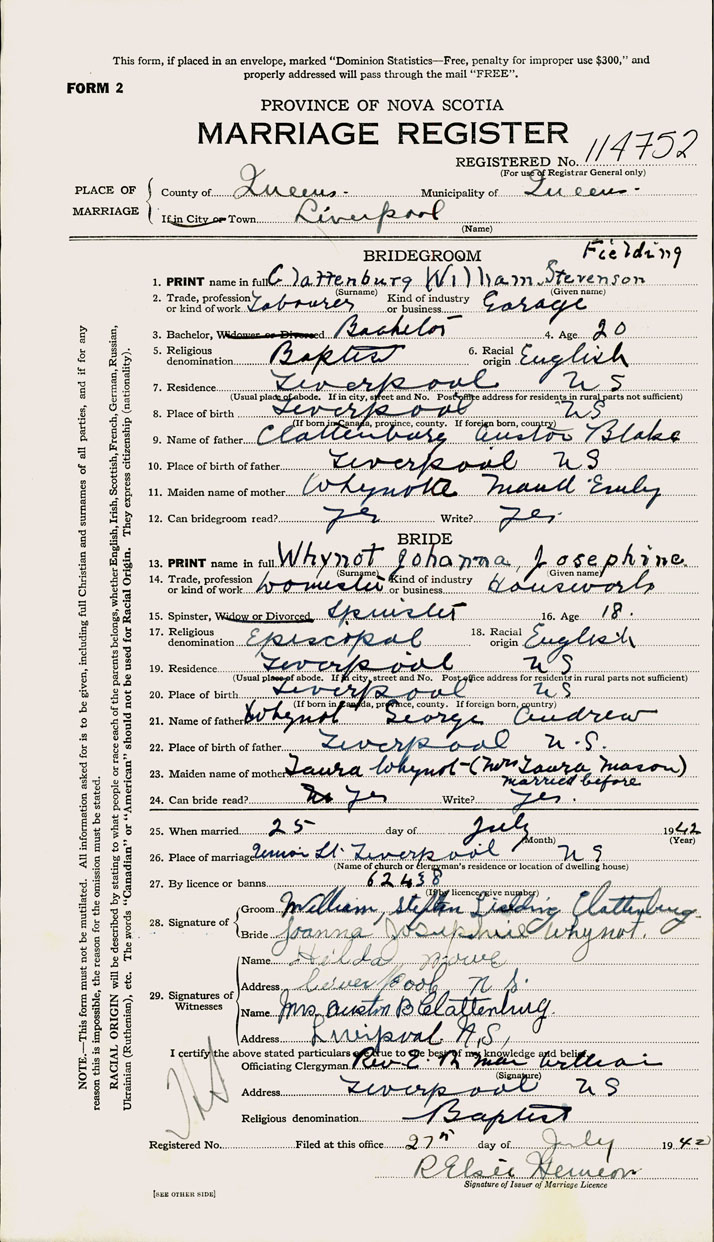 This form, if placed in an envelope, marked "Dominion Statistics—Free, penalty for improper use $300," and
properly addressed will pass through the mail "FREE".
FORM 2
PROVINCE OF NOVA SCOTIA
MARRIAGE REGISTER
REGISTERED No. 114752
(For use of Registrar General only)
PLACE OF MARRIAGE
County of Queens - Municipality of Queens -
If in City or Town Liverpool
(Name)
BRIDEGROOM Fielding
1. PRINT name in full Clattenburg William Stevenson
(Surname) (Given name)
2. Trade, profession or kind of work Labourer Kind of industry or business Garage
3. Bachelor, Widower or Divorced Bachelor 4. Age 20
5. Religious denomination Baptist 6. Racial origin English
7. Residence Liverpool N S
(Usual place of abode. If in city, street and No. Post office address for residents in rural parts not sufficient)
8. Place of birth Liverpool N S
(If born in Canada, province, county. If foreign born, country)
9. Name of father Clattenburg Auston Blake
10. Place of birth of father Liverpool N S
11. Maiden name of mother Whynotte Maud Emily
12. Can bridegroom read? yes Write? yes
BRIDE
13. PRINT name in full Whynot Johanna Josephine
(Surname) (Given name)
14. Trade, profession or kind of work Domestic Kind of industry or business Housework
15. Spinster, Widow or Divorced Spinster 16. Age 18.
17. Religious denomination Episcopal 18. Racial origin English
19. Residence Liverpool N S
(Usual place of abode. If in city, street and No. Post office address for residents in rural parts not sufficient)
20. Place of birth Liverpool N S
(If born in Canada, province, county. If foreign born, country)
21. Name of father Whynot George Andrew
22. Place of birth of father Liverpool N.S.
23. Maiden name of mother Laura Whynot - (Mrs Laura Mason)
married before
24. Can bride read? No Yes Write? Yes.
25. When married 25 day of July 1942
(Month) (Year)
26. Place of marriage Union St. Liverpool N S
(Name of church or clergyman's residence or location of dwelling house)
27. By licence or banns 62438
(If by licence, give number)
28. Signature of
Groom William Fielding Clattenburg
Bride Joanna Josephine Whynot.
29. Signatures of Witnesses
Name Hilda
Address Liverpool N S.
Name Mrs Auston B Clattenburg.
Address Liverpool N.S,
I certify the above stated particulars are true to the best of my knowledge and belief.
Officiating Clergyman Rev. E. R.
(Signature)
Address Liverpool N S
Religious denomination Baptist
Registered No. Filed at this office 27th day of July 1942
R Elsie Hemeon
Signature of Issuer of Marriage Licence
[SEE OTHER SIDE]
NOTE.—This form must not be mutilated. All information asked for is to be given, including full Christian and surnames of all parties, and if for any
reason this is impossible, the reason for the omission must be stated.
RACIAL ORIGIN will be described by stating to what people or race each of the parents belongs, whether English, Irish, Scottish, French, German, Russian,
Ukrainian (Ruthenian), etc. The words "Canadian" or "American" should not be used for Racial Origin. They express citizenship (nationality).